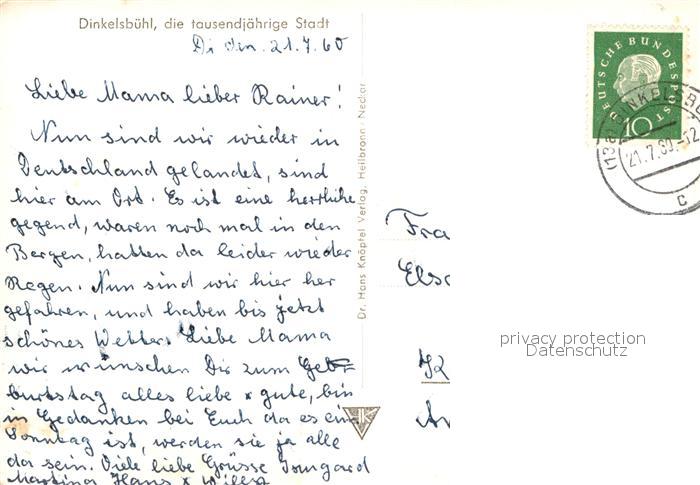 Dinkelsbühl, die tausendjährige Stadt
Di den. 21.7.60
Liebe Mama lieber Rainer!
Nun sind wir wieder in
Deutschland gelandet, sind
hier am Ort. Es ist eine herrliche
gegend, waren noch mal in den
Bergen, hatten da leider wieder
Regen. Nun sind wir hier her
gefahren, und haben bis jetzt
schönes Wetter. Liebe Mama
wir wünschen Dir zum Ge
burtstag alles liebe & gute, bin
in Gedanken bei Euch da es ein
Sonntag ist, werden sie ja alle
da sein. Viele liebe Grüsse Irmgard
Martina Hans &
Dr. Hans Knöpfel Verlag, Heilbronn/Neckar
DEUTSCHE BUNDESPOST
10
(13a) DINKELSB
21.7.60.-12
c
Fra
Els
privacy protection
Datenschutz